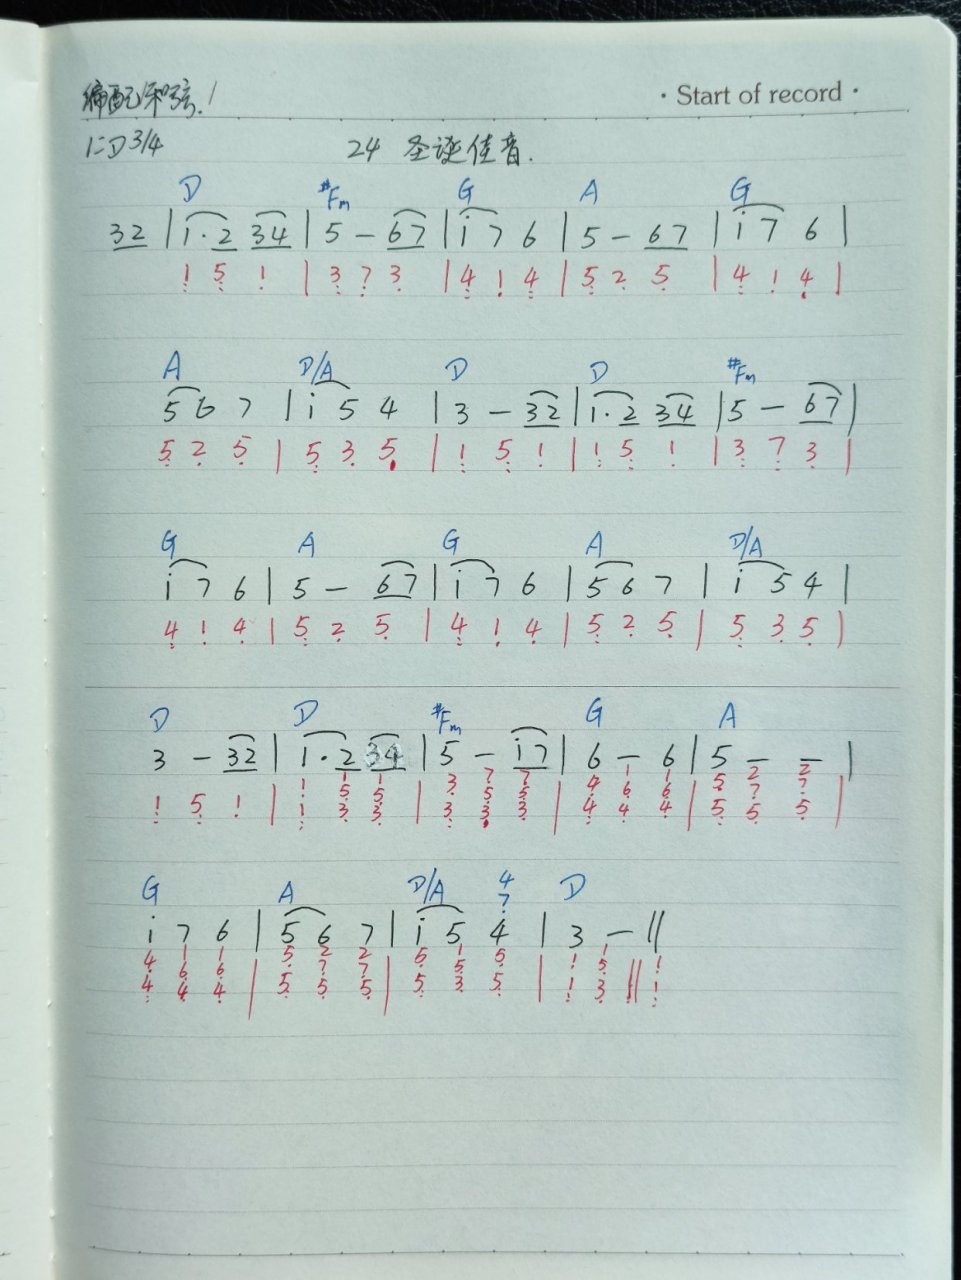 编配和弦.!
· Start of record ·
1=D 3/4 24 圣诞佳音.
D #Fm G A G
32 | i·2 34 | 5 - 67 | i 7 6 | 5 - 67 | i 7 6 |
1 5 1 | 3 7 3 | 4 1 4 | 5 2 5 | 4 1 4 |
A D/A D D #Fm
5 6 7 | i 5 4 | 3 - 32 | i·2 34 | 5 - 67 |
5 2 5 | 5 3 5 | 1 5 1 | 1 5 1 | 3 7 3 |
G A G A D/A
i 7 6 | 5 - 67 | i 7 6 | 5 6 7 | i 5 4 |
4 1 4 | 5 2 5 | 4 1 4 | 5 2 5 | 5 3 5 |
D D #Fm G A
3 - 32 | i·2 34 | 5 - i7 | 6 - 6 | 5 - - |
1 1 5 | 3 7 7 | 4 1 1 | 5 2 2
5 5 | 5 5 | 6 6 | 7 7
1 5 1 | 1 3 3 | 3 3 3 | 4 4 4 | 5 5 5 |
G A D/A 4 D
7
i 7 6 | 5 6 7 | i 5 4 | 3 - ||
4 1 1 | 5 2 2 | 5 1 5 | 1 5 || 1
6 6 | 7 7 | 5
4 4 4 | 5 5 5 | 5 3 5 | 1 3 1 || 1